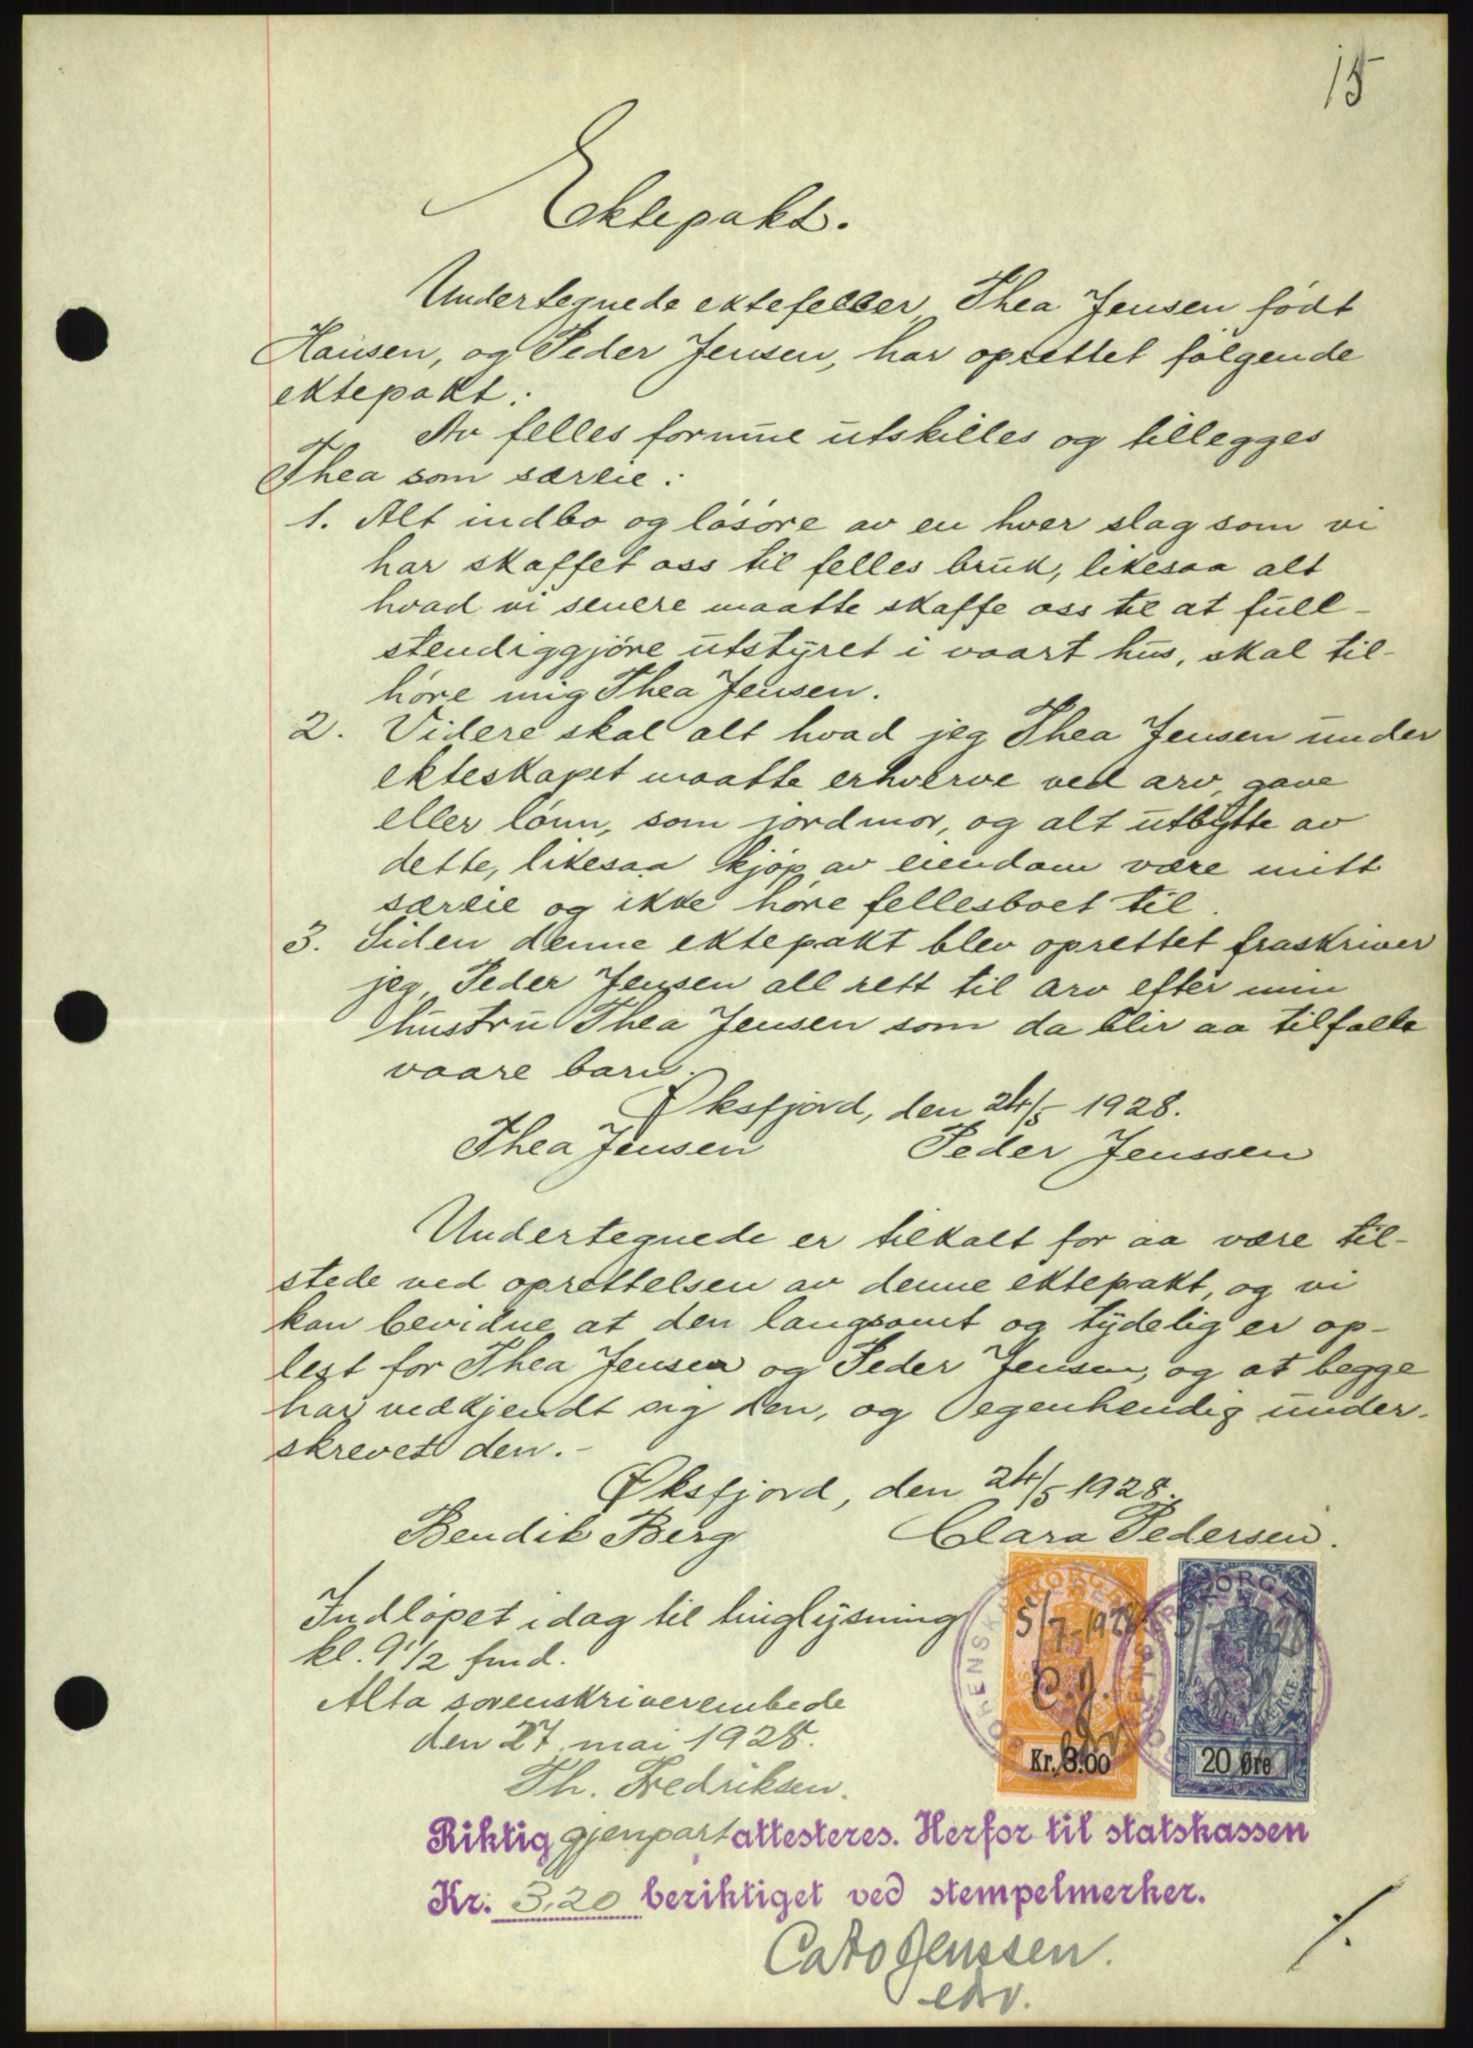 15
Ektepakt.
Undertegnede ektefeller Thea Jensen født
Hansen, og Peder Jensen, har oprettet følgende
ektepakt:
Av felles formue utskilles og tillegges
Thea som særeie:
1. Alt indbo og løsøre av en hver slag som vi
har skaffet oss til felles bruk, likesaa alt
hvad vi senere maatte skaffe oss til at full-
stendiggjøre utstyret i vaart hus, skal til-
høre mig Thea Jensen.
2. Videre skal alt hvad jeg Thea Jensen under
ekteskapet maatte erhverve ved arv, gave
eller lønn, som jordmor, og alt utbytte av
dette, likesaa kjøp av eiendom være mitt
særeie og ikke høre fellesboet til.
3. Siden denne ektepakt blev oprettet fraskriver
jeg, Peder Jensen all rett til arv efter min
hustru Thea Jensen som da blir aa tilfalle
vaare barn.
Øksfjord, den 24/5 1928.
Thea Jensen Peder Jenssen
Undertegnede er tilkalt for aa være til-
stede ved oprettelsen av denne ektepakt, og vi
kan bevidne at den langsomt og tydelig er op-
lest for Thea Jensen og Peder Jensen, og at begge
har vedkjendt sig den, og egenhendig under-
skrevet den.-
Øksfjord, den 24/5 1928.
Bendik Berg Clara Pedersen.
Indløpet idag til tinglysning
kl. 9 1/2 fmd.
Alta sorenskriverembede
den 27. mai 1928.
Th. Fredriksen.
NORGE NORGE
5/7-1928 5/7-1928
C.J.
Kr. 3.00 20 Øre
Riktig gjenpart attesteres. Herfor til statskassen
Kr. 3.20 beriktiget ved stempelmerker.
Cato Jenssen.
edv.